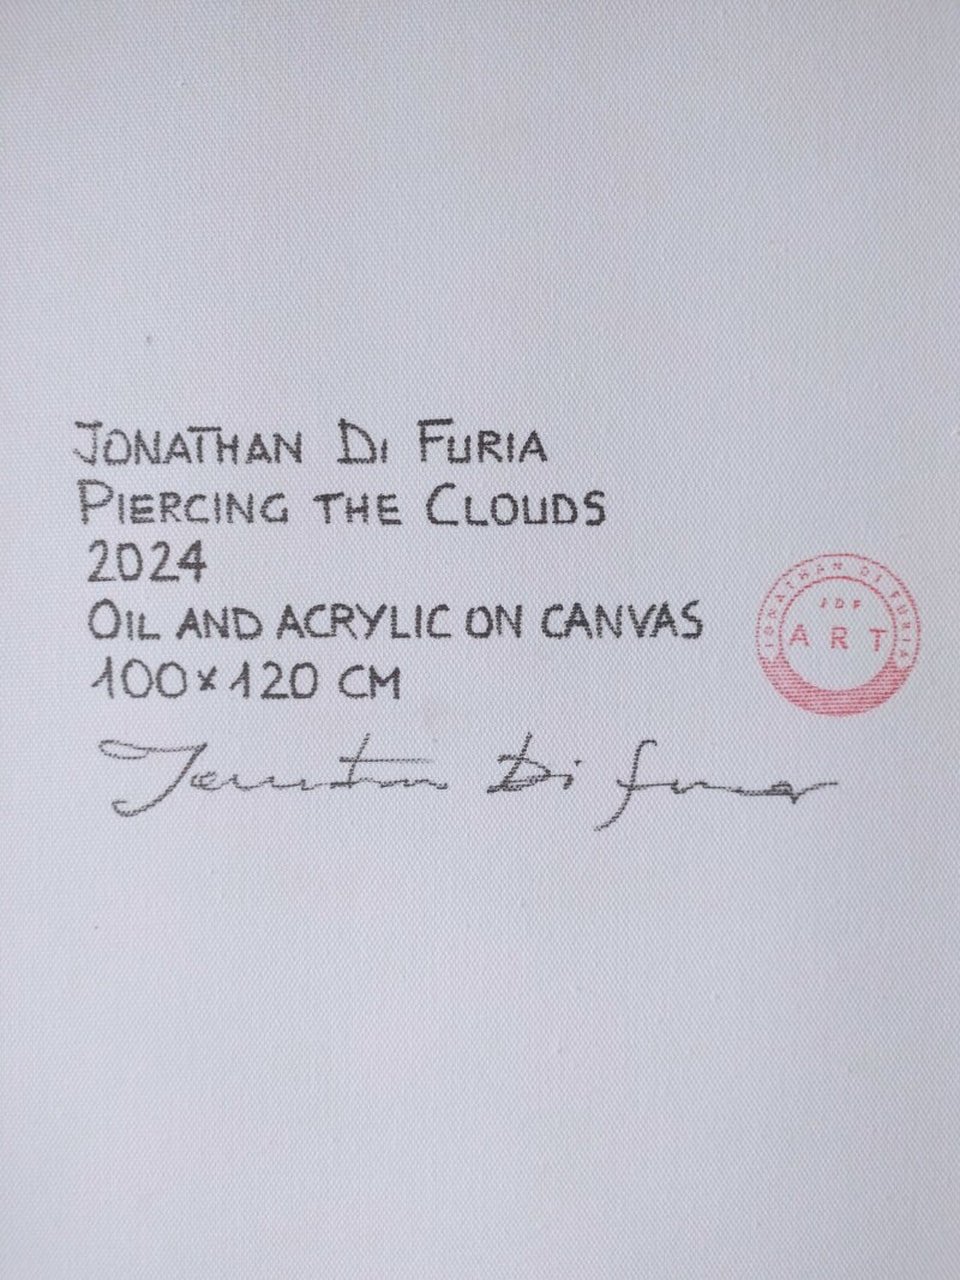 JONATHAN DI FURIA
PIERCING THE CLOUDS
2024
OIL AND ACRYLIC ON CANVAS
100 x 120 CM
Jonathan Di Furia
JONATHAN DI FURIA
JDF
ART